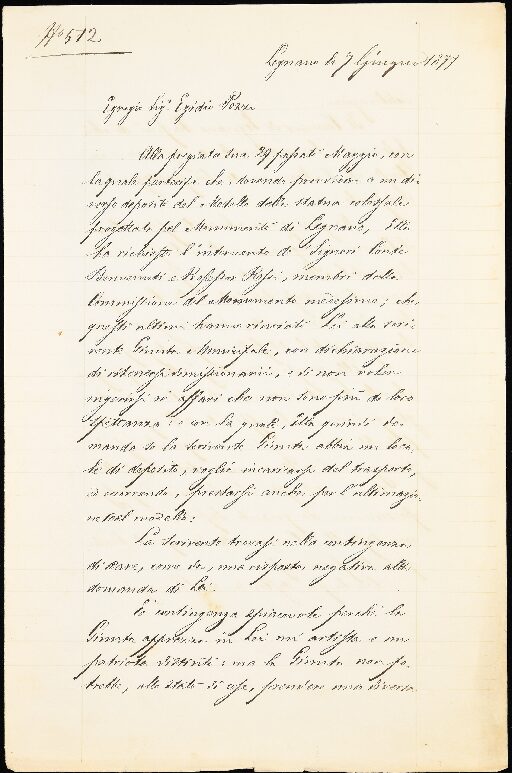 N° 512
Legnano li 7 Giugno 1877
Egregio Sig.r Egidio Pozzi
Alla pregiata sua 29 passati Maggio, con
la quale partecipa che, dovendo provvedere a un di-
verso deposito del Modello della statua colossale
progettata pel Monumento di Legnano, Ella
ha richiesto l'intervento dei Signori Conte
Benvenuti e Professor Rossi, membri della
Commissione del Monumento medesimo; che
questi ultimi hanno rinviato Lei alla scri-
vente Giunta Municipale, con dichiarazione
di ritenersi dimissionarii, e di non voler
ingerirsi in affari che non sono più di loro
spettanza: e con la quale, Ella quindi do-
manda se la scrivente Giunta abbia un loca-
le di deposito, voglia incaricarsi del trasporto,
e prestarsi anche per l'ultimazio-
ne del modello:
La scrivente trovasi nella contingenza
di dare, come da, una risposta negativa alla
domanda di Lei.
È contingenza spiacevole perché la
Giunta apprezza in Lei un artista e un
patriota distinti: ma la Giunta non po-
trebbe, allo stato di cose, prendere una diversa